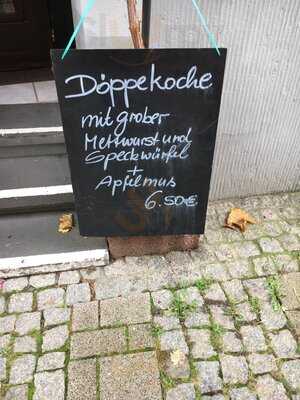 Döppekoche
mit grober
Mettwurst und
Speckwürfel
+
Apfelmus
6.50€